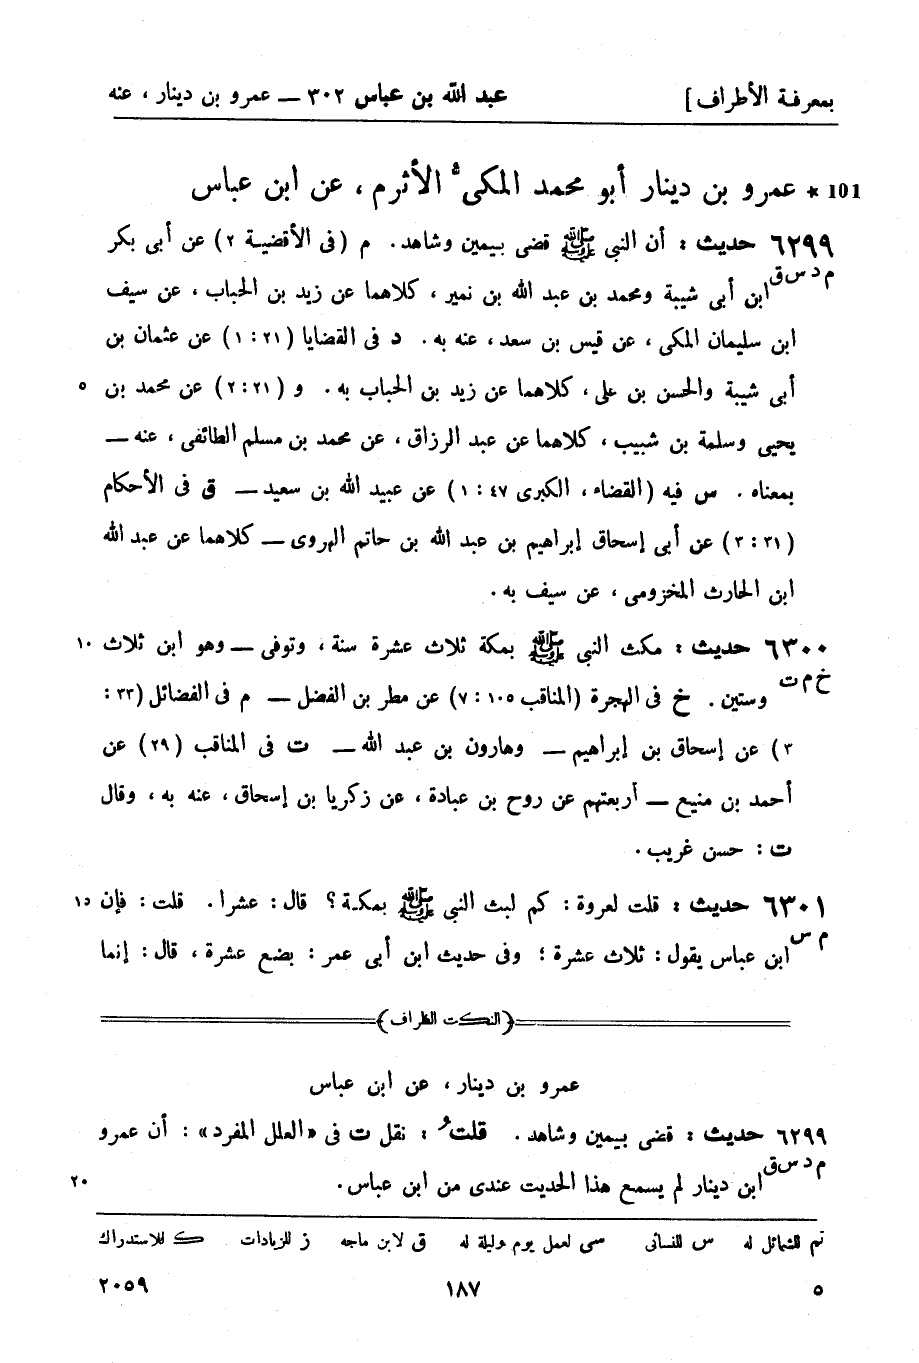 بمعرفة الأطراف] عبد الله بن عباس ٣٠٢ — عمرو بن دينار ، عنه
101 * عمرو بن دينار أبو محمد المكى الأثرم ، عن ابن عباس
٦٢٩٩ حديث : أن النبي ﷺ قضى بيمين وشاهد . م (فى الأقضية ٢) عن أبى بكر
م د س ق ابن أبى شيبة ومحمد بن عبد الله بن نمير ، كلاهما عن زيد بن الحباب ، عن سيف
ابن سليمان المكى ، عن قيس بن سعد ، عنه به . د فى القضايا (٢١ : ١) عن عثمان بن
أبى شيبة والحسن بن على ، كلاهما عن زيد بن الحباب به . و (٢١ : ٢) عن محمد بن ٥
يحيى وسلمة بن شبيب ، كلاهما عن عبد الرزاق ، عن محمد بن مسلم الطائفى ، عنه —
بمعناه . س فيه (القضاء ، الكبرى ٤٧ : ١) عن عبيد الله بن سعيد — ق فى الأحكام
(٣١ : ٣) عن أبى إسحاق إبراهيم بن عبد الله بن حاتم الهروى — كلاهما عن عبد الله
ابن الحارث المخزومى ، عن سيف به .
٦٣٠٠ حديث : مكث النبي ﷺ بمكة ثلاث عشرة سنة ، وتوفى — وهو ابن ثلاث ١٠
خ م ت وستين . خ فى الهجرة (المناقب ١٠٥ : ٧) عن مطر بن الفضل — م فى الفضائل (٣٣ :
٣) عن إسحاق بن إبراهيم — وهارون بن عبد الله — ت فى المناقب (٢٩) عن
أحمد بن منيع — أربعتهم عن روح بن عبادة ، عن زكريا بن إسحاق ، عنه به ، وقال
ت : حسن غريب .
٦٣٠١ حديث : قلت لعروة : كم لبث النبي ﷺ بمكة ؟ قال : عشرا . قلت : فإن ١٥
م س ابن عباس يقول : ثلاث عشرة ؛ وفى حديث ابن أبى عمر : بضع عشرة ، قال : إنما
(النكت الظراف)
عمرو بن دينار ، عن ابن عباس
٦٢٩٩ حديث : قضى بيمين وشاهد . قلت : نقل ت فى «العلل المفرد» : أن عمرو
م د س ق ابن دينار لم يسمع هذا الحديث عندى من ابن عباس . ٢٠
تم للشمائل له س للنسائى سى لعمل يوم وليلة له ق لابن ماجه ز للزيادات ك للاستدراك
٥ ١٨٧ ٢٠٥٩